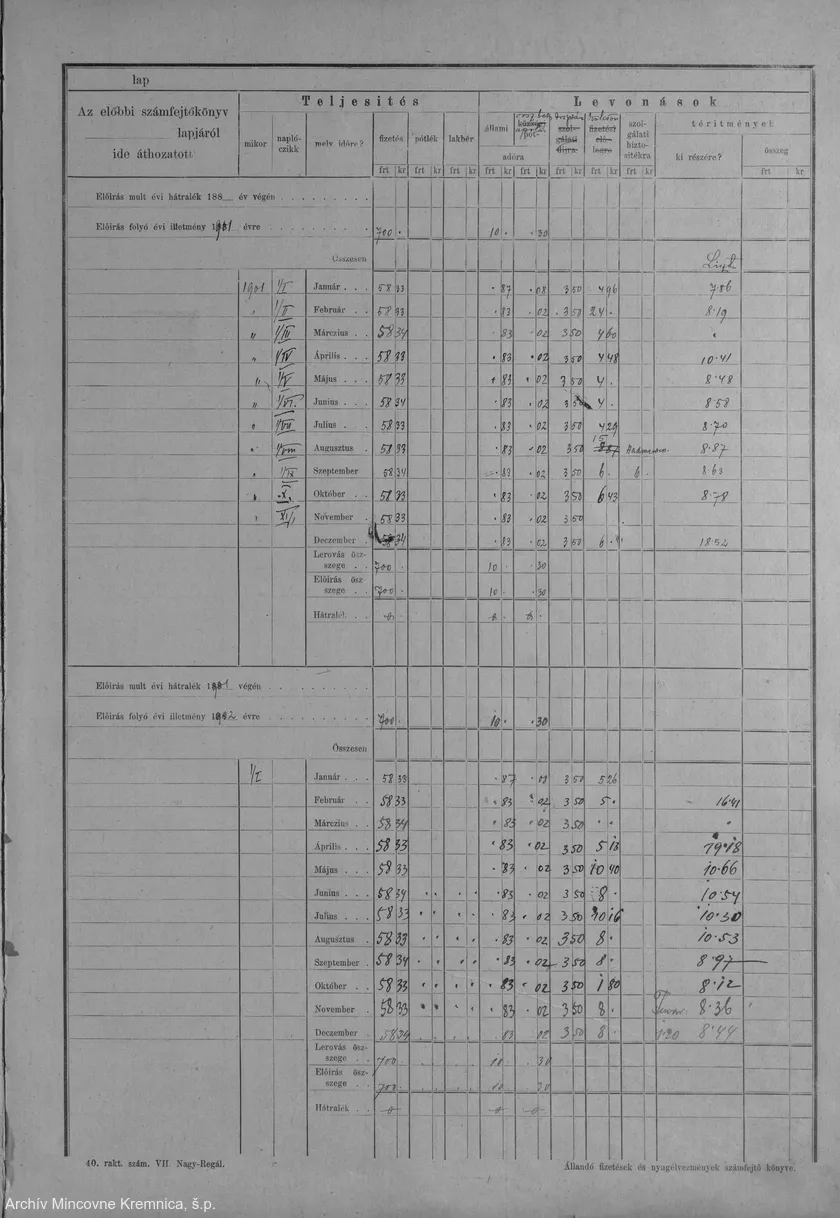 lap
Az előbbi számfejtőkönyv
lapjáról
ide áthozatott
Teljesitós
Levonások
mikor
napló-
czikk
mely időre?
fizetés
pótlék
lakbér
állami
adóra
szol-
gálati
bizto-
sitékra
téritményei
ki részére?
összeg
frt kr frt kr frt kr frt kr frt kr frt kr frt kr frt kr frt kr
Előirás mult évi hátralék 188 év végén
Előirás folyó évi illetmény 1901 évre 700 10 30
Összesen
1901 1/I Január 58 33 87 08 3 50 4 96 7·06
1/II Február 58 33 83 02 3 50 24 8·19
" 1/III Márczius 58 34 83 02 3 50 4 60
" 1/IV Április 58 33 83 02 3 50 4 48 10·41
" 1/V Május 58 33 83 02 3 50 4 8·48
" 1/VI. Junius 58 34 83 02 3 50 4 8·58
1/VII Julius 58 33 83 02 3 50 4 29 8·70
1/VIII Augusztus 58 33 83 02 3 50 8·87
1/IX Szeptember 58 34 83 02 3 50 6 6 8·63
X. Október 58 33 83 02 3 50 6 43 8·78
XI/1 November 58 33 83 02 3 50
Deczember 58 34 83 02 3 50 6 18·52
Lerovás ösz-
szege 700 10 30
Előirás ösz
szege 700 10 30
Hátralék
Előirás mult évi hátralék 1901 végén
Előirás folyó évi illetmény 1902 évre 700 10 30
Összesen
1/I Január 58 33 87 3 50 5 26
Február 58 33 83 02 3 50 5 16·41
Márczius 58 34 83 02 3 50 "
Április 58 33 83 02 3 50 5 13 19·18
Május 58 33 83 02 3 50 10 40 10·66
Junius 58 34 83 02 3 50 8 10·54
Julius 58 33 83 02 3 50 10·30
Augusztus 58 33 83 02 3 50 8 10·53
Szeptember 58 34 83 02 3 50 8 8·97
Október 58 33 83 02 3 50 1 80 8·12
November 58 33 83 02 3 50 8 8·36
Deczember 58 34 83 02 3 50 8 1·20 8·44
Lerovás ösz-
szege 700 10 30
Előirás ösz-
szege 700 10 30
Hátralék
40. rakt. szám. VII. Nagy-Regál.
Állandó fizetések és nyugélvezmények számfejtő könyve.
Archív Mincovne Kremnica, š.p.